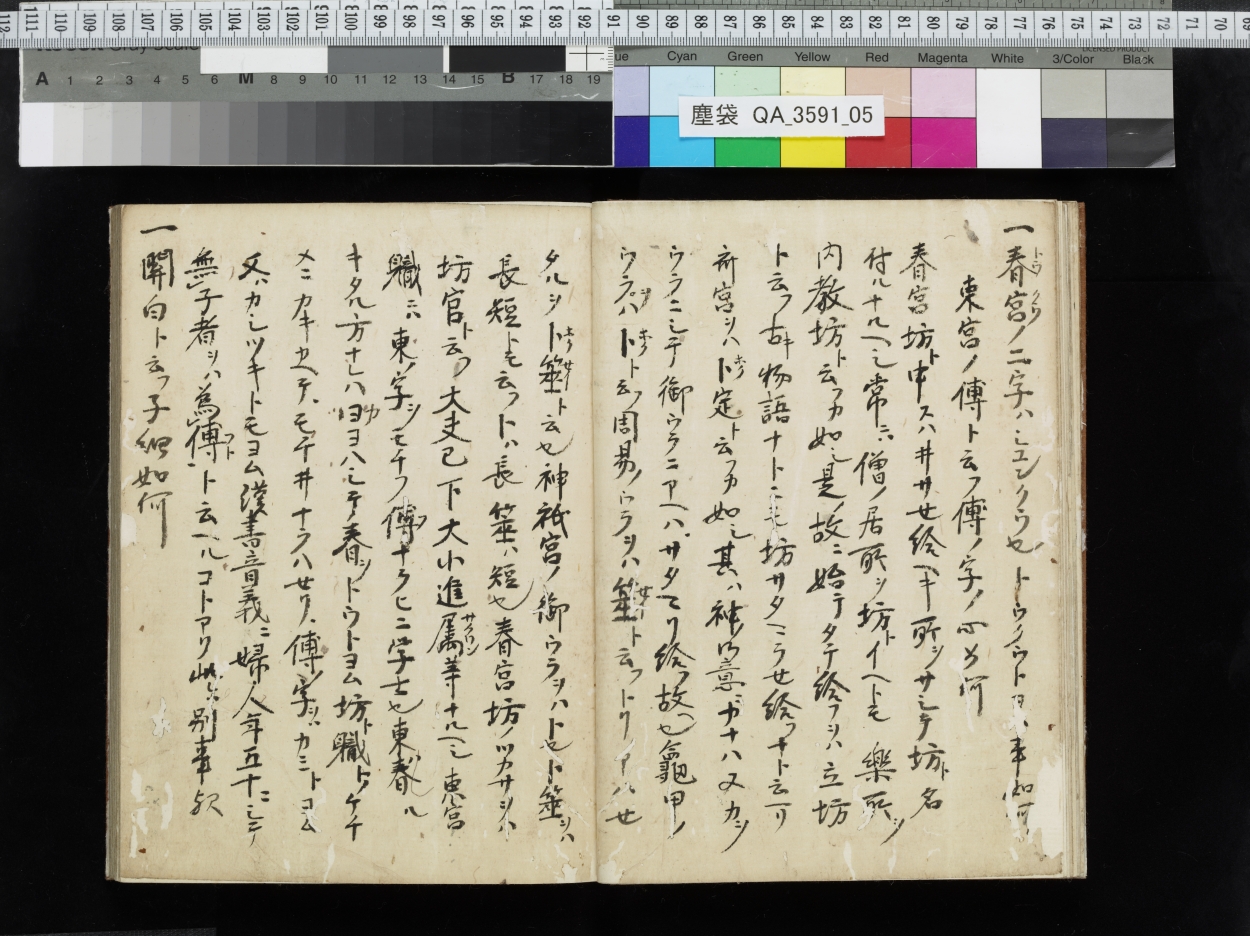 塵袋 QA_3591_05
Cyan Green Yellow Red Magenta White 3/Color Black
A 1 2 3 4 5 6 M 8 9 10 11 12 13 14 15 B 17 18 19
一春宮ノ二字ハシユンクウセトウクウトヨム事如何
東宮ノ傅ト云フ傅ノ字ノ心如何
春宮坊ト申スハ井サせ給ヘキ所ヲサシテ坊ト名
付ルナルヘシ常ニハ僧ノ居所ヲ坊トイヘトモ樂所ヲ
内教坊ト云フカ如シ是ノ故ニ始テタテ給フヲハ立坊
ト云フ古キ物語ナトニモ坊サタマラせ給フナト云ヘリ
斎宮ヲハ卜定ト云フカ如シ其ハ神ノ御意ニカナハヌカヲ
ウラニシテ御ウラニアヘハサタマリ給フ故也龜甲ノ
ウラヲハ卜ト云フ周易ノウラヲハ筮ト云フトリアハせ
タルヲ卜筮ト云也神祇官ノ御ウラヲハト也卜筮ヲハ
長短トモ云フトハ長筮ハ短也春宮坊ノツカサヲハ
坊官ト云フ大夫已下大小進属等ナルヘシ東宮
職ニハ東ノ字ヲモチフ傅ナラヒニ学士也東春ル
キタル方ナレハヨヨハシテ春ヲトウトヨム坊ト職トケチ
メニカキカヘテモチ井ナラハせリ傅ノ字ヲハカシトヨム
又ハカシツキトモヨム漢書音義ニ婦人年五十ニシテ
無子者ヲハ爲傅ト云ヘルコトアリ此ハ別事歟
一關白ト云フ子細如何